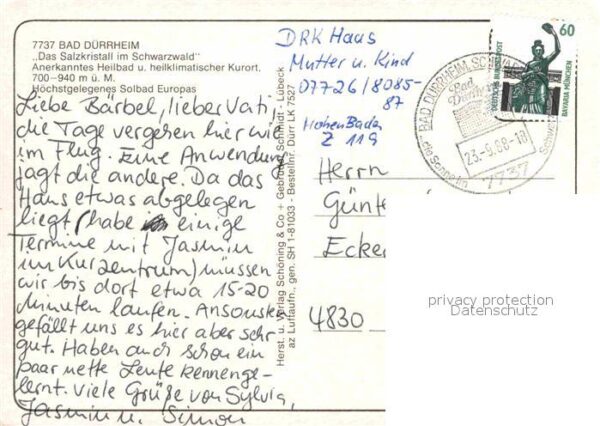 7737 BAD DÜRRHEIM
„Das Salzkristall im Schwarzwald"
Anerkanntes Heilbad u. heilklimatischer Kurort.
700–940 m ü. M.
Höchstgelegenes Solbad Europas
Liebe Bärbel, lieber Vati,
die Tage vergehen hier wie
im Flug. Eine Anwendung
jagt die andere. Da das
Haus etwas abgelegen
liegt (habe einige
Termine mit Jasmin
im Kurzentrum) müssen
wir bis dort etwa 15-20
Minuten laufen. Ansonsten
gefällt uns es hier aber sehr
gut. Haben auch schon ein
paar nette Leute kennenge-
lernt. Viele Grüße von Sylvia,
Jasmin u. Simon
Herst. u. Verlag Schöning & Co + Gebrüder Schmidt · Lübeck
az Luftaufn., gen. SH 1-81033 - Bestellnr. Dürr LK 7527
DRK Haus
Mutter u. Kind
07726/8085-
87
HohenBaden
Z 119
60
DEUTSCHE BUNDESPOST
BAVARIA MÜNCHEN
BAD DÜRRHEIM
Bad
23.-9.88-18
7737
Herrn
Günt
Ecke
4830
privacy protection
Datenschutz